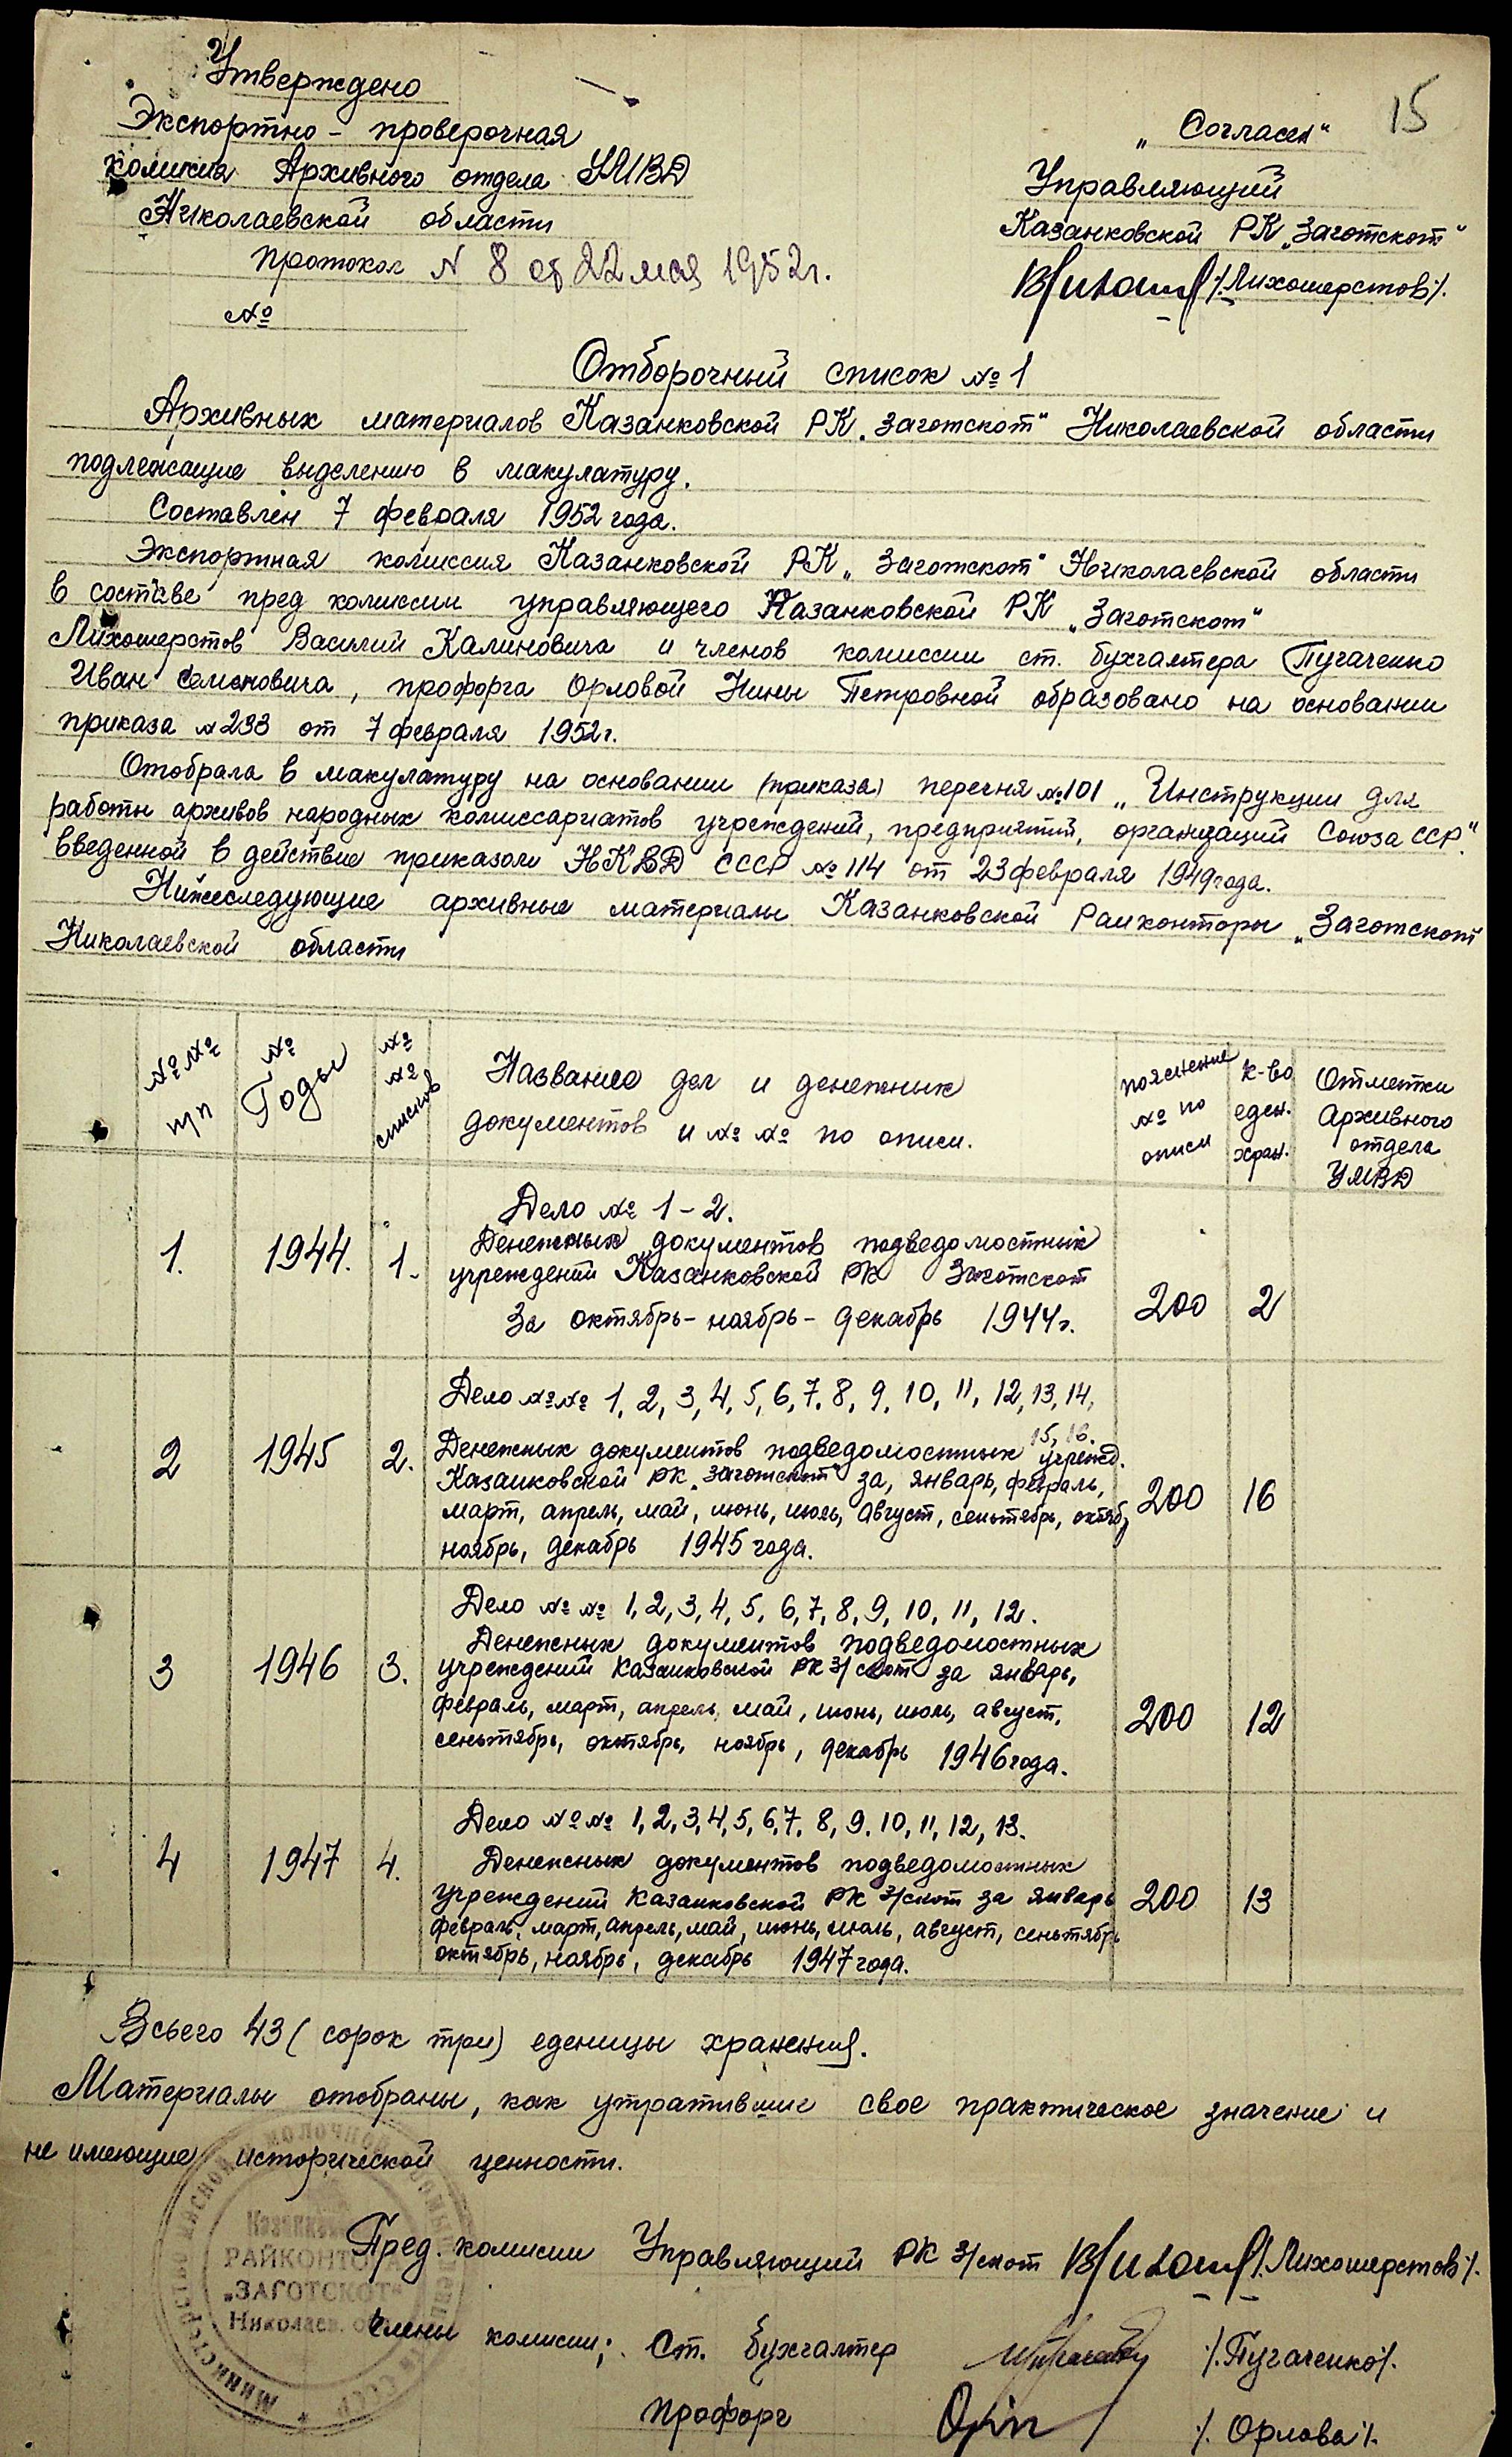 15
Утверждено
Экспортно - проверочная
комисия Архивного отдела УМВД
Николаевской области
протокол N 8 от 22 мая 1952 г.
№
„Согласен"
Управляющий
Казанковской РК „Заготскот"
/.Лихошерстов/.
Отборочный список № 1
Архивных материалов Казанковской РК „Заготскот" Николаевской области
подлежащие выделению в макулатуру.
Составлен 7 февраля 1952 года.
Экспортная комиссия Казанковской РК „Заготскот" Николаевской области
в составе пред комиссии управляющего Казанковской РК „Заготскот"
Лихошерстов Василий Калиновича и членов комиссии ст. бухгалтера Пугаченко
Иван Семеновича, профорга Орловой Нины Петровной образовано на основании
приказа № 233 от 7 февраля 1952 г.
Отобрала в макулатуру на основании (приказа) перечня № 101 „Инструкции для
работы архивов народных комиссариатов учреждений, предприятий, организаций Союза ССР".
введенной в действие приказом НКВД СССР № 114 от 23 февраля 1949 года.
Нижеследующие архивные материалы Казанковской Раиконторы „Заготскот
Николаевской области
№ №
п/п
№
Годы
№
№
списков
Название дел и денежных
документов и № № по описи.
пояснение
№ по
описи
к-во
еден.
хран.
Отметки
Архивного
отдела
УМВД
Дело № 1 - 2.
1. 1944. 1. Денежных документов подведомостных
учреждении Казанковской РК Заготскот
За октябрь - ноябрь - декабрь 1944 г. 200 2
Дело № № 1, 2, 3, 4, 5, 6, 7, 8, 9, 10, 11, 12, 13, 14,
15, 16.
2 1945 2. Денежных документов подведомостных учрежд.
Казанковской РК „Заготскот" за, январь, февраль,
март, апрель, май, июнь, июль, август, сеньтябрь, октяб, 200 16
ноябрь, декабрь 1945 года.
Дело № № 1, 2, 3, 4, 5, 6, 7, 8, 9, 10, 11, 12.
Денежных документов подведомостных
3 1946 3. учреждений Казанковской РК З/скот за январь,
февраль, март, апрель, май, июнь, июль, август, 200 12
сеньтябрь, октябрь, ноябрь, декабрь 1946 года.
Дело № № 1, 2, 3, 4, 5, 6, 7, 8, 9, 10, 11, 12, 13.
4 1947 4. Денежных документов подведомостных
учреждений Казанковской РК З/скот за январь 200 13
февраль, март, апрель, май, июнь, июль, август, сеньтябрь
октябрь, ноябрь, декабрь 1947 года.
Всьего 43 ( сорок три) еденицы хранения.
Материалы отобраны, как утратившие свое практическое значение и
не имеющие исторической ценности.
Пред. комисии Управляющий РК З/скот /.Лихошерстов/.
Члены комисии; Ст. бухгалтер /.Пугаченко/.
Профорг /. Орлова/.
РАЙКОНТО
„ЗАГОТСКОТ"
Николаев.